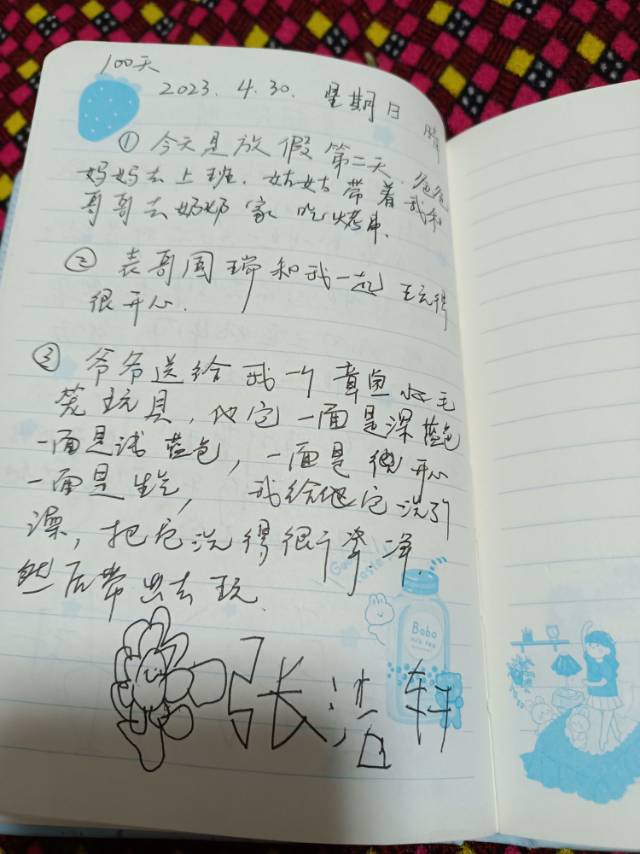 100天
2023. 4. 30. 星期日 晴
①今天是放假第二天.爸爸
妈妈去上班.姑姑带着我和
哥哥去奶奶家吃烤串.
②表哥周瑞和我一起玩得
很开心.
③爷爷送给我一个章鱼小毛
茏玩具,它一面是深蓝色
一面是浅蓝色,一面是很开心
一面是生气,我给它洗了
澡,把它洗得很干净.
然后带出去玩.
张浩轩
Bobo